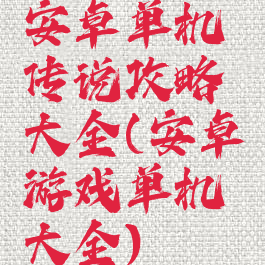 安卓单机
传说攻略
大全(安卓
游戏单机
大全)